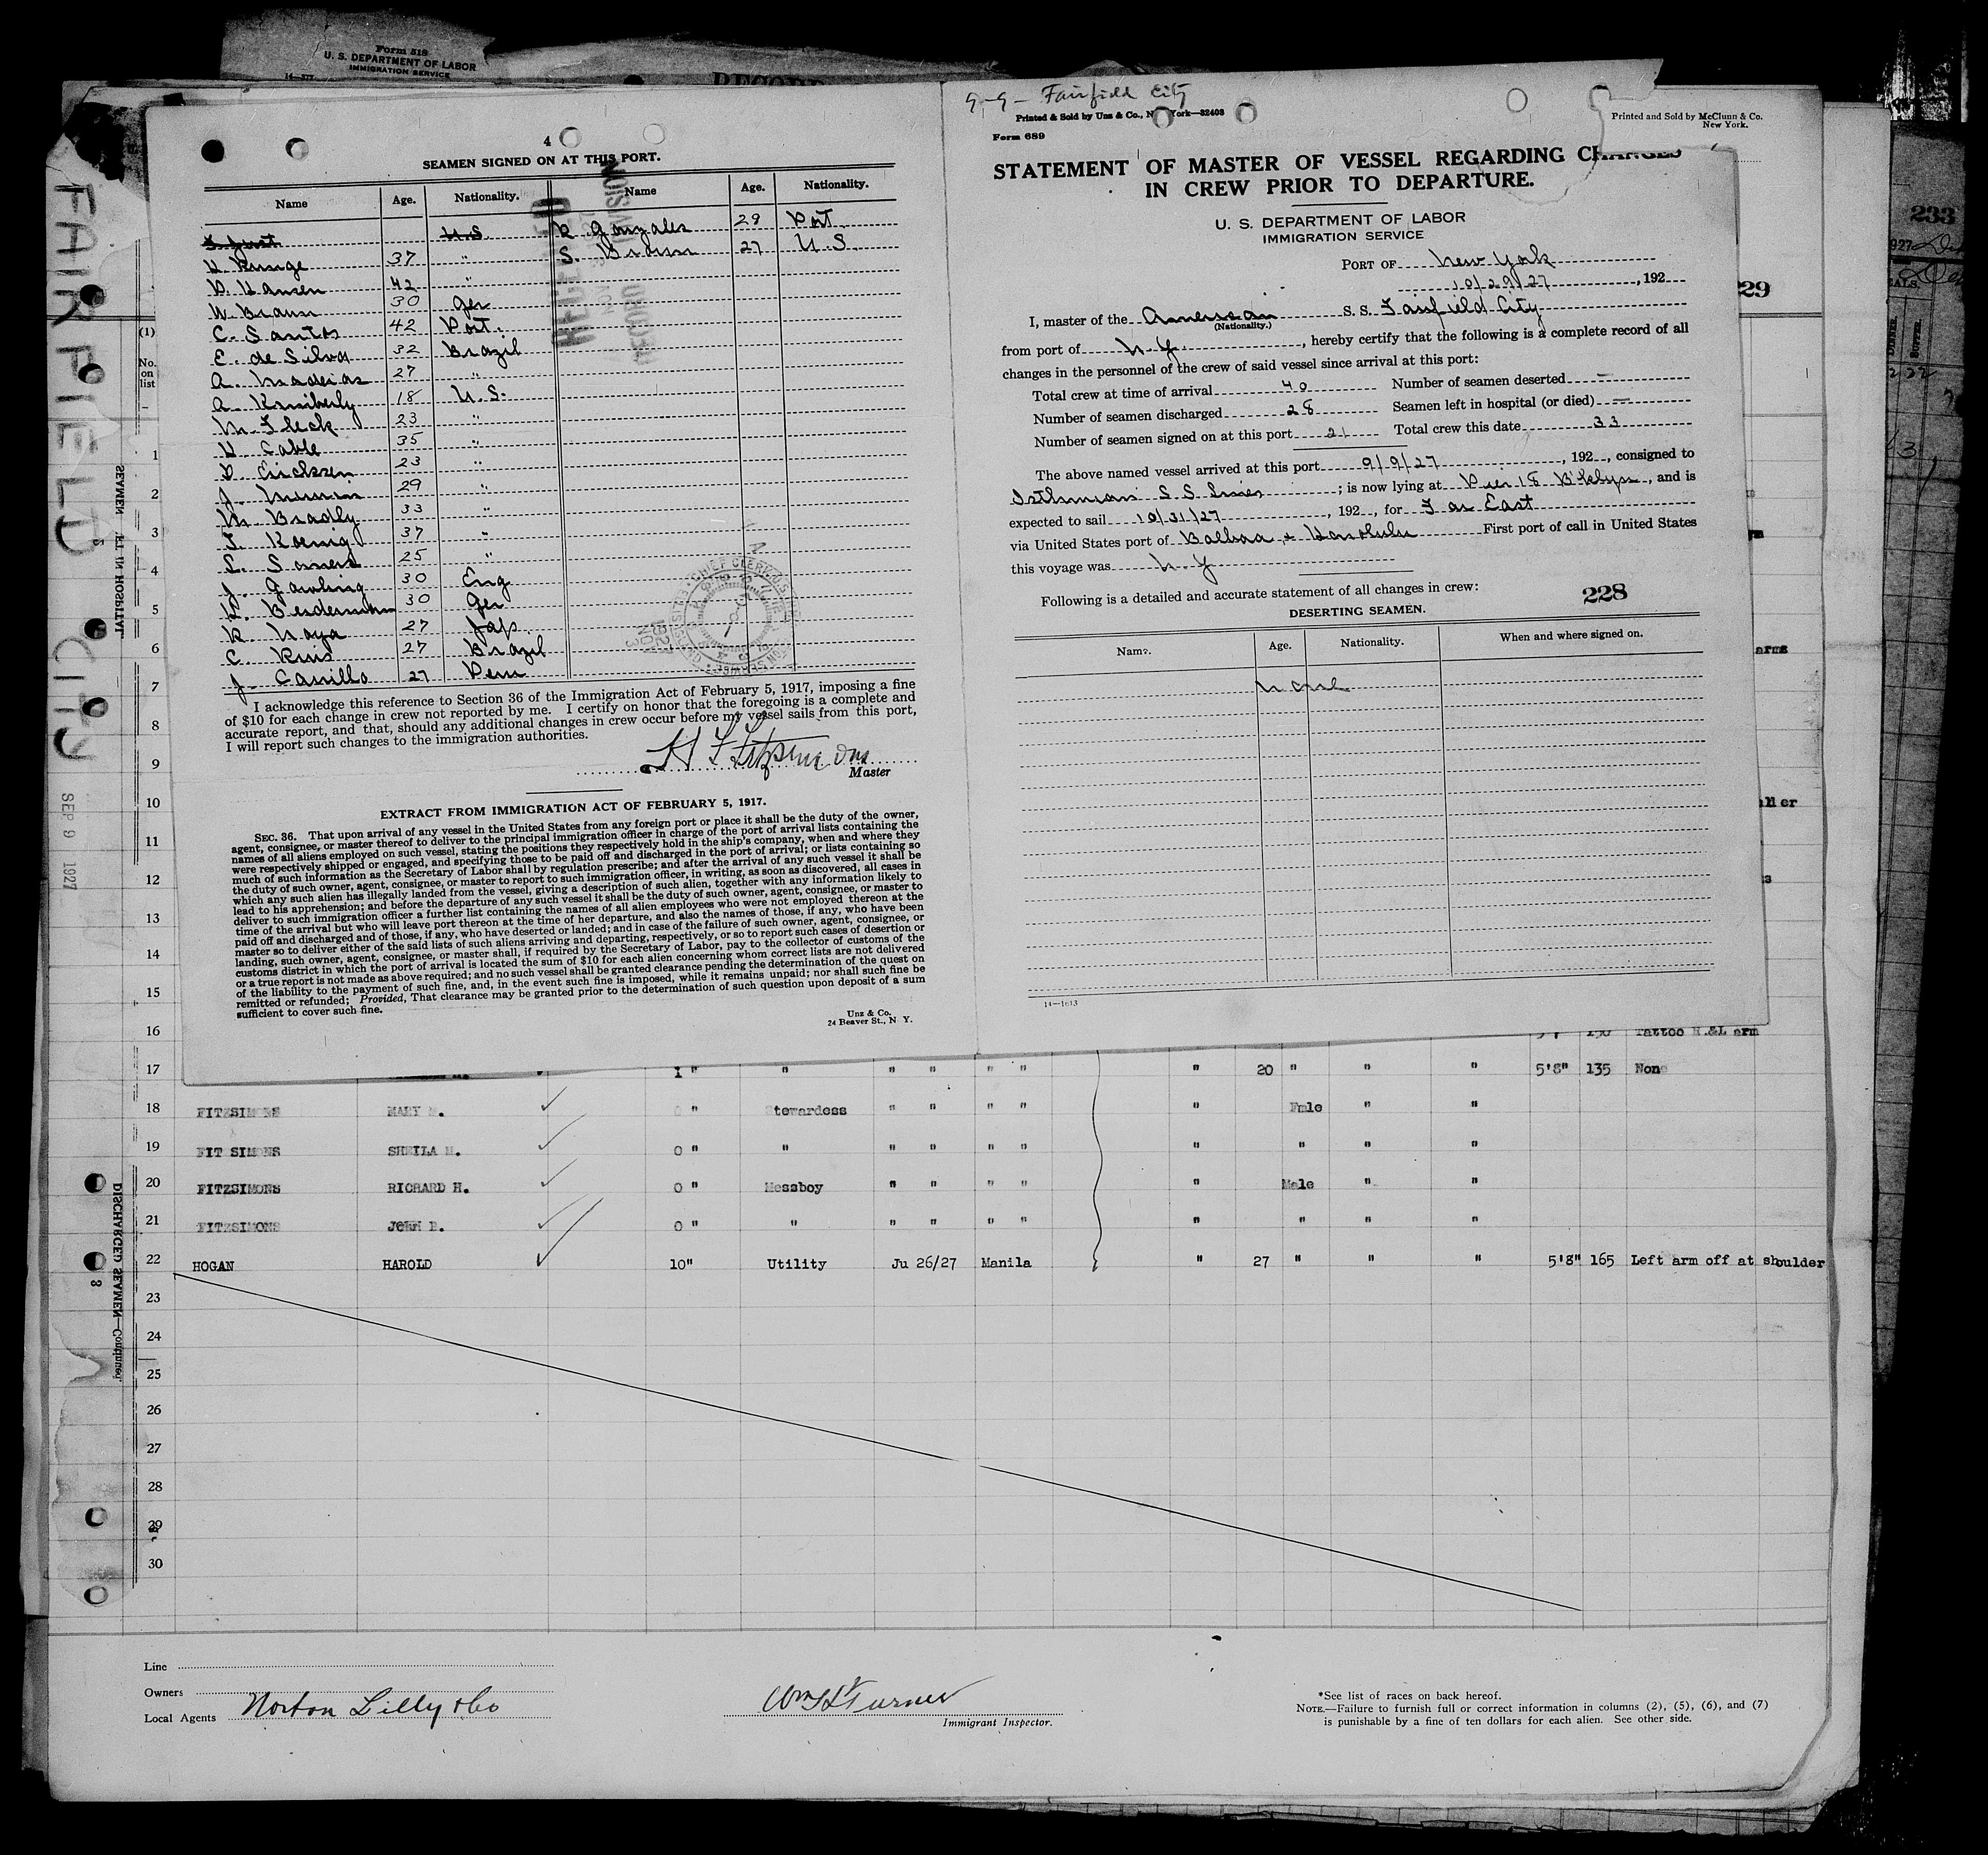 Form 518
U. S. DEPARTMENT OF LABOR
IMMIGRATION SERVICE
14-577
RECORD
FAIRFIELD CITY
SEP 9 1927
4
SEAMEN SIGNED ON AT THIS PORT.
Name Age. Nationality. Name Age. Nationality.
U.S. R Gonzales 29 Port.
H Runge 37 " S. Braun 27 U S
P. Hansen 42 "
W Braun 30 Ger
C. Santos 42 Port.
E. de Silva 32 Brazil
A. Madeias 27 "
A. Kimberly 18 U.S.
M. Fleck 23 "
H Cable 35 "
P. Ericksen 23 "
J. 29 "
M. Bradly 33 "
J. Koenig 37 "
L. 25 "
J. Gowling 30 Eng
30 Ger
K Naya 27 Jap.
C 27 Brazil
J- Carrillo 27 Peru
I acknowledge this reference to Section 36 of the Immigration Act of February 5, 1917, imposing a fine
of $10 for each change in crew not reported by me. I certify on honor that the foregoing is a complete and
accurate report, and that, should any additional changes in crew occur before my vessel sails from this port,
I will report such changes to the immigration authorities.
H F Fitzsimons
Master
EXTRACT FROM IMMIGRATION ACT OF FEBRUARY 5, 1917.
SEC. 36. That upon arrival of any vessel in the United States from any foreign port or place it shall be the duty of the owner,
agent, consignee, or master thereof to deliver to the principal immigration officer in charge of the port of arrival lists containing the
names of all aliens employed on such vessel, stating the positions they respectively hold in the ship's company, when and where they
were respectively shipped or engaged, and specifying those to be paid off and discharged in the port of arrival; or lists containing so
much of such information as the Secretary of Labor shall by regulation prescribe; and after the arrival of any such vessel it shall be
the duty of such owner, agent, consignee, or master to report to such immigration officer, in writing, as soon as discovered, all cases in
which any such alien has illegally landed from the vessel, giving a description of such alien, together with any information likely to
lead to his apprehension; and before the departure of any such vessel it shall be the duty of such owner, agent, consignee, or master to
deliver to such immigration officer a further list containing the names of all alien employees who were not employed thereon at the
time of the arrival but who will leave port thereon at the time of her departure, and also the names of those, if any, who have been
paid off and discharged and of those, if any, who have deserted or landed; and in case of the failure of such owner, agent, consignee, or
master so to deliver either of the said lists of such aliens arriving and departing, respectively, or so to report such cases of desertion or
landing, such owner, agent, consignee, or master shall, if required by the Secretary of Labor, pay to the collector of customs of the
customs district in which the port of arrival is located the sum of $10 for each alien concerning whom correct lists are not delivered
or a true report is not made as above required; and no such vessel shall be granted clearance pending the determination of the quest on
of the liability to the payment of such fine, and, in the event such fine is imposed, while it remains unpaid; nor shall such fine be
remitted or refunded; Provided, That clearance may be granted prior to the determination of such question upon deposit of a sum
sufficient to cover such fine.
Unz & Co.
24 Beaver St., N Y.
9-9- Fairfield City
Printed & Sold by Unz & Co., New York—82403
Form 689
Printed and Sold by McClunn & Co.
New York.
STATEMENT OF MASTER OF VESSEL REGARDING CHANGES
IN CREW PRIOR TO DEPARTURE.
U. S. DEPARTMENT OF LABOR
IMMIGRATION SERVICE
PORT OF New York
10/29/27, 192
I, master of the American S. S. Fairfield City
(Nationality.)
from port of N. Y., hereby certify that the following is a complete record of all
changes in the personnel of the crew of said vessel since arrival at this port:
Total crew at time of arrival 40 Number of seamen deserted —
Number of seamen discharged 28 Seamen left in hospital (or died) —
Number of seamen signed on at this port 21 Total crew this date 33
The above named vessel arrived at this port 9/9/27, 192, consigned to
Isthmian S S Lines; is now lying at Pier 18 B'klyn, and is
expected to sail 10/31/27, 192, for Far East
via United States port of Balboa + Honolulu First port of call in United States
this voyage was N Y
Following is a detailed and accurate statement of all changes in crew: 228
DESERTING SEAMEN.
Name. Age. Nationality. When and where signed on.
None
14—1613
229
233
(1)
No. on list
SEAMEN LEFT IN HOSPITAL
DISCHARGED SEAMEN—Continued.
1
2
3
4
5
6 arms
7
8
9
10
11
12
13
14
15
16 Tattoo R.&L arm
17 1" " " " " " " 20 " " " 5'8" 135 None
18 FITZSIMONS MARY M. 0 " Stewardess " " " " " Fmle " "
19 FITZSIMONS SHEILA H. 0 " " " " " " " " " "
20 FITZSIMONS RICHARD H. 0 " Messboy " " " " " Male " "
21 FITZSIMONS JOHN E. 0 " " " " " " " " " "
22 HOGAN HAROLD 10" Utility Ju 26/27 Manila " 27 " " " 5'8" 165 Left arm off at shoulder
23
24
25
26
27
28
29
30
Line
Owners
Local Agents Norton Lilly & Co
Immigrant Inspector.
*See list of races on back hereof.
NOTE.—Failure to furnish full or correct information in columns (2), (5), (6), and (7)
is punishable by a fine of ten dollars for each alien. See other side.